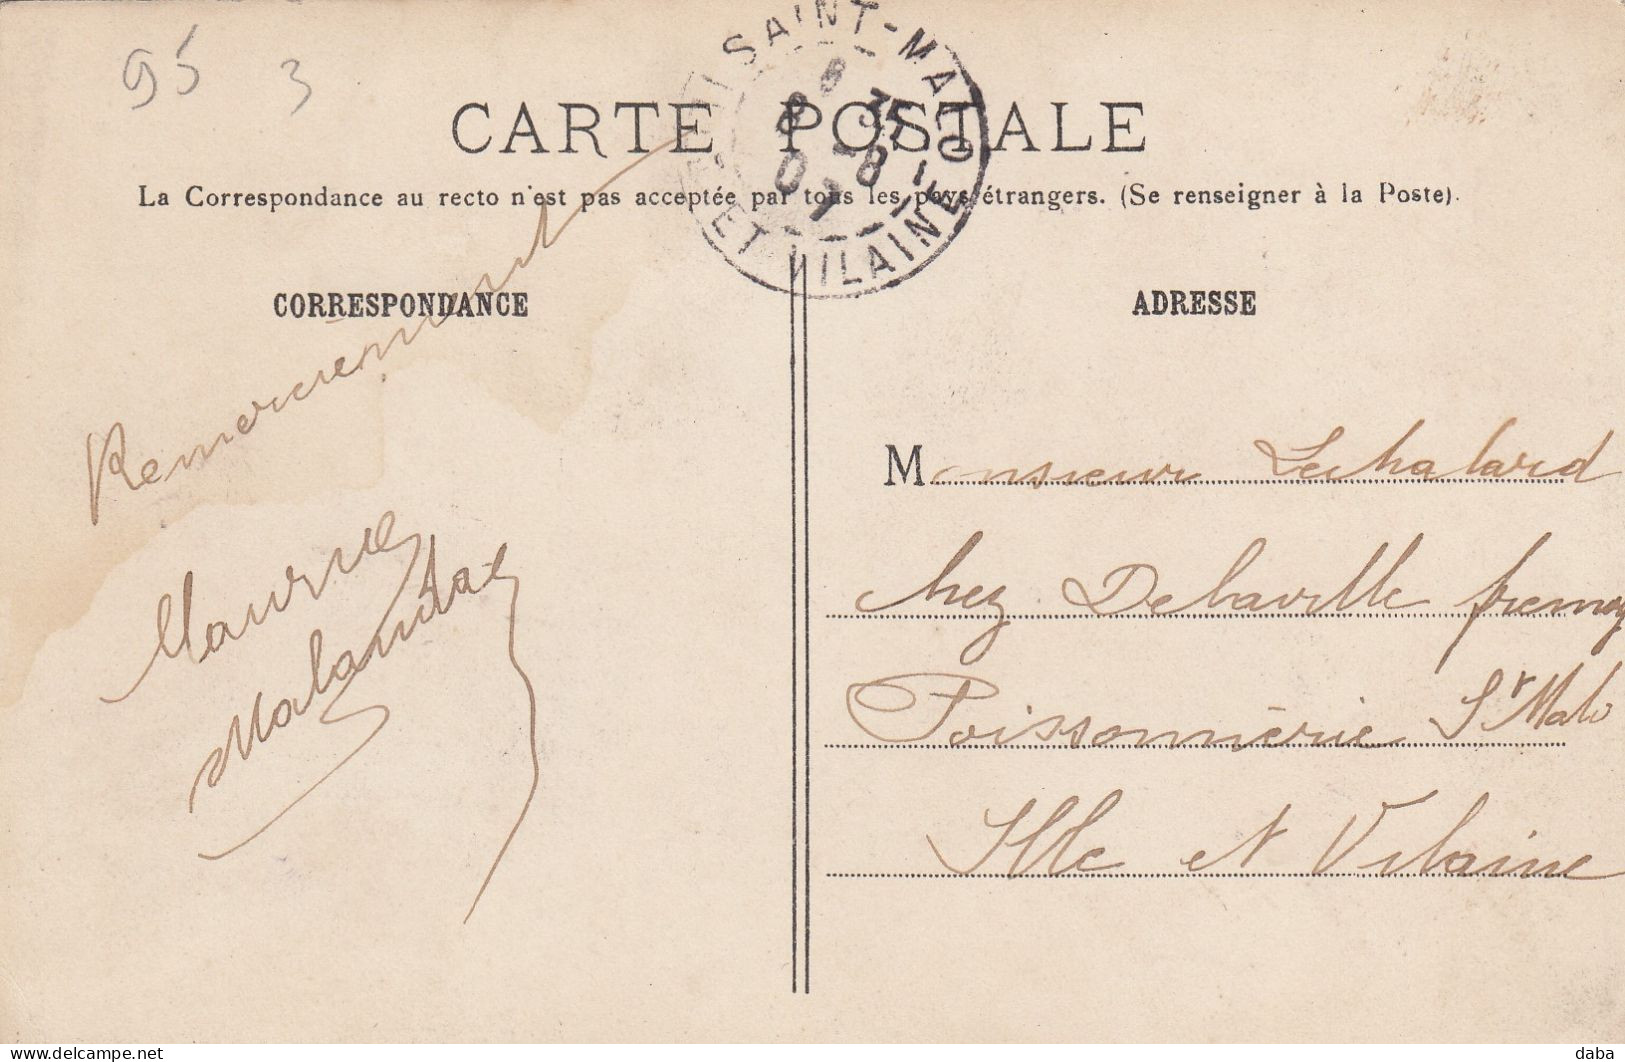 95 3
CARTE POSTALE
SAINT-MALO
ET VILAINE
8 35
8 -8
07
La Correspondance au recto n'est pas acceptée par tous les pays étrangers. (Se renseigner à la Poste).
CORRESPONDANCE
Remerciement
Maurice
ADRESSE
Monsieur Lechalard
chez Delaville fremoy
Poissonnièrie St Malo
Ille et Vilaine
© delcampe.net
daba